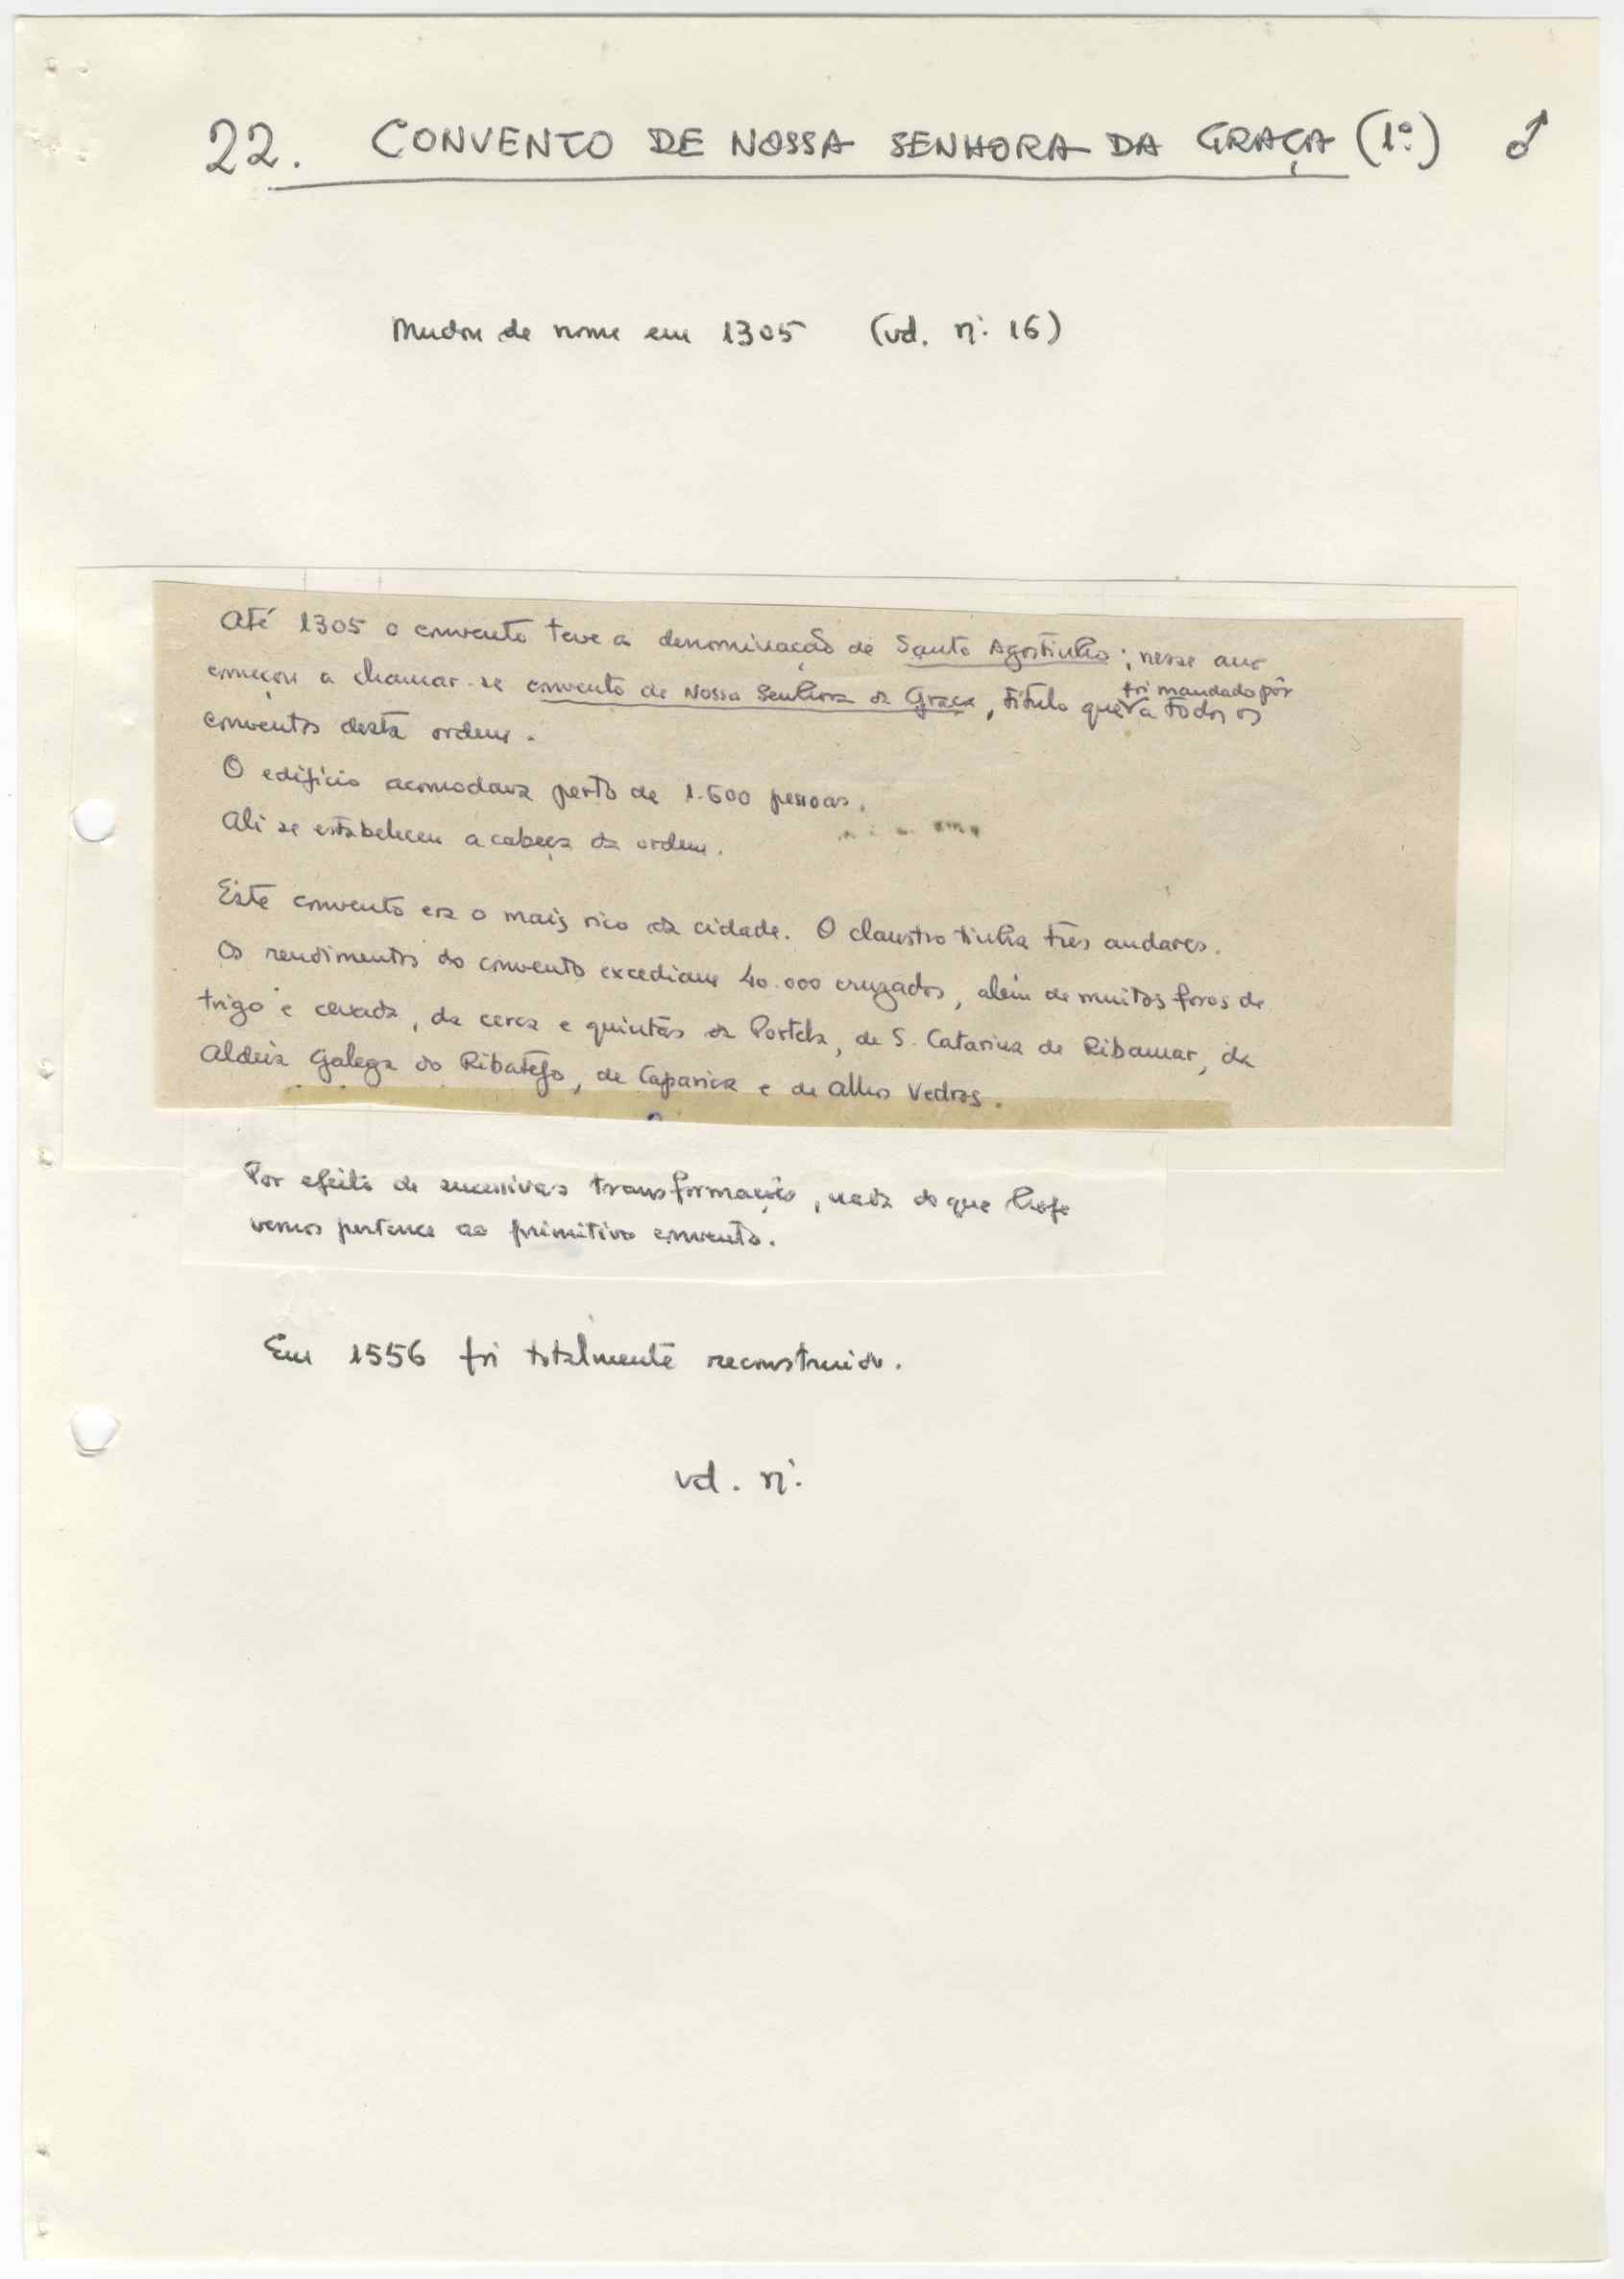 22. CONVENTO DE NOSSA SENHORA DA GRAÇA (1º) ♂
Mudou de nome em 1305 (vd. nº 16)
Até 1305 o convento teve a denominação de Santo Agostinho; nesse ano
começou a chamar-se convento de Nossa Senhora da Graça, título que foi mandado pôr a todos os
conventos desta ordem.
O edifício acomodava perto de 1.600 pessoas.
Ali se estabeleceu a cabeça da ordem.
Este convento era o mais rico da cidade. O claustro tinha três andares.
Os rendimentos do convento excediam 40.000 cruzados, além de muitos foros de
trigo e cevada, da cerca e quintas da Portela, de S. Catarina de Ribamar, da
Aldeia Galega do Ribatejo, de Caparica e de Alhos Vedros.
Por efeito de sucessivas transformações, nada do que hoje
vemos pertence ao primitivo convento.
Em 1556 foi totalmente reconstruído.
vd. nº